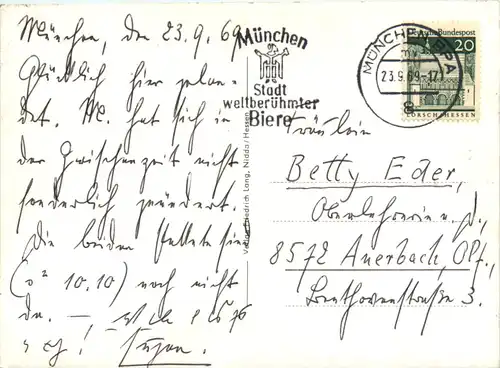 München, den 23.9.69
Glücklich hier gelan-
det. M. hat sich in
der Zwischenzeit nicht
sonderlich geändert.
Die beiden
(o² 10.10) noch nicht
da. —,
München
Stadt
weltberühmter
Biere
Verlag Friedrich Lang, Nidda/Hessen
MÜNCHEN BPA
23.9.69-17
Deutsche Bundespost
20
LORSCH/HESSEN
Fräulein
Betty Eder,
Oberlehrerin a. D.,
8572 Auerbach, Opf.,
Beethovenstraße 3.